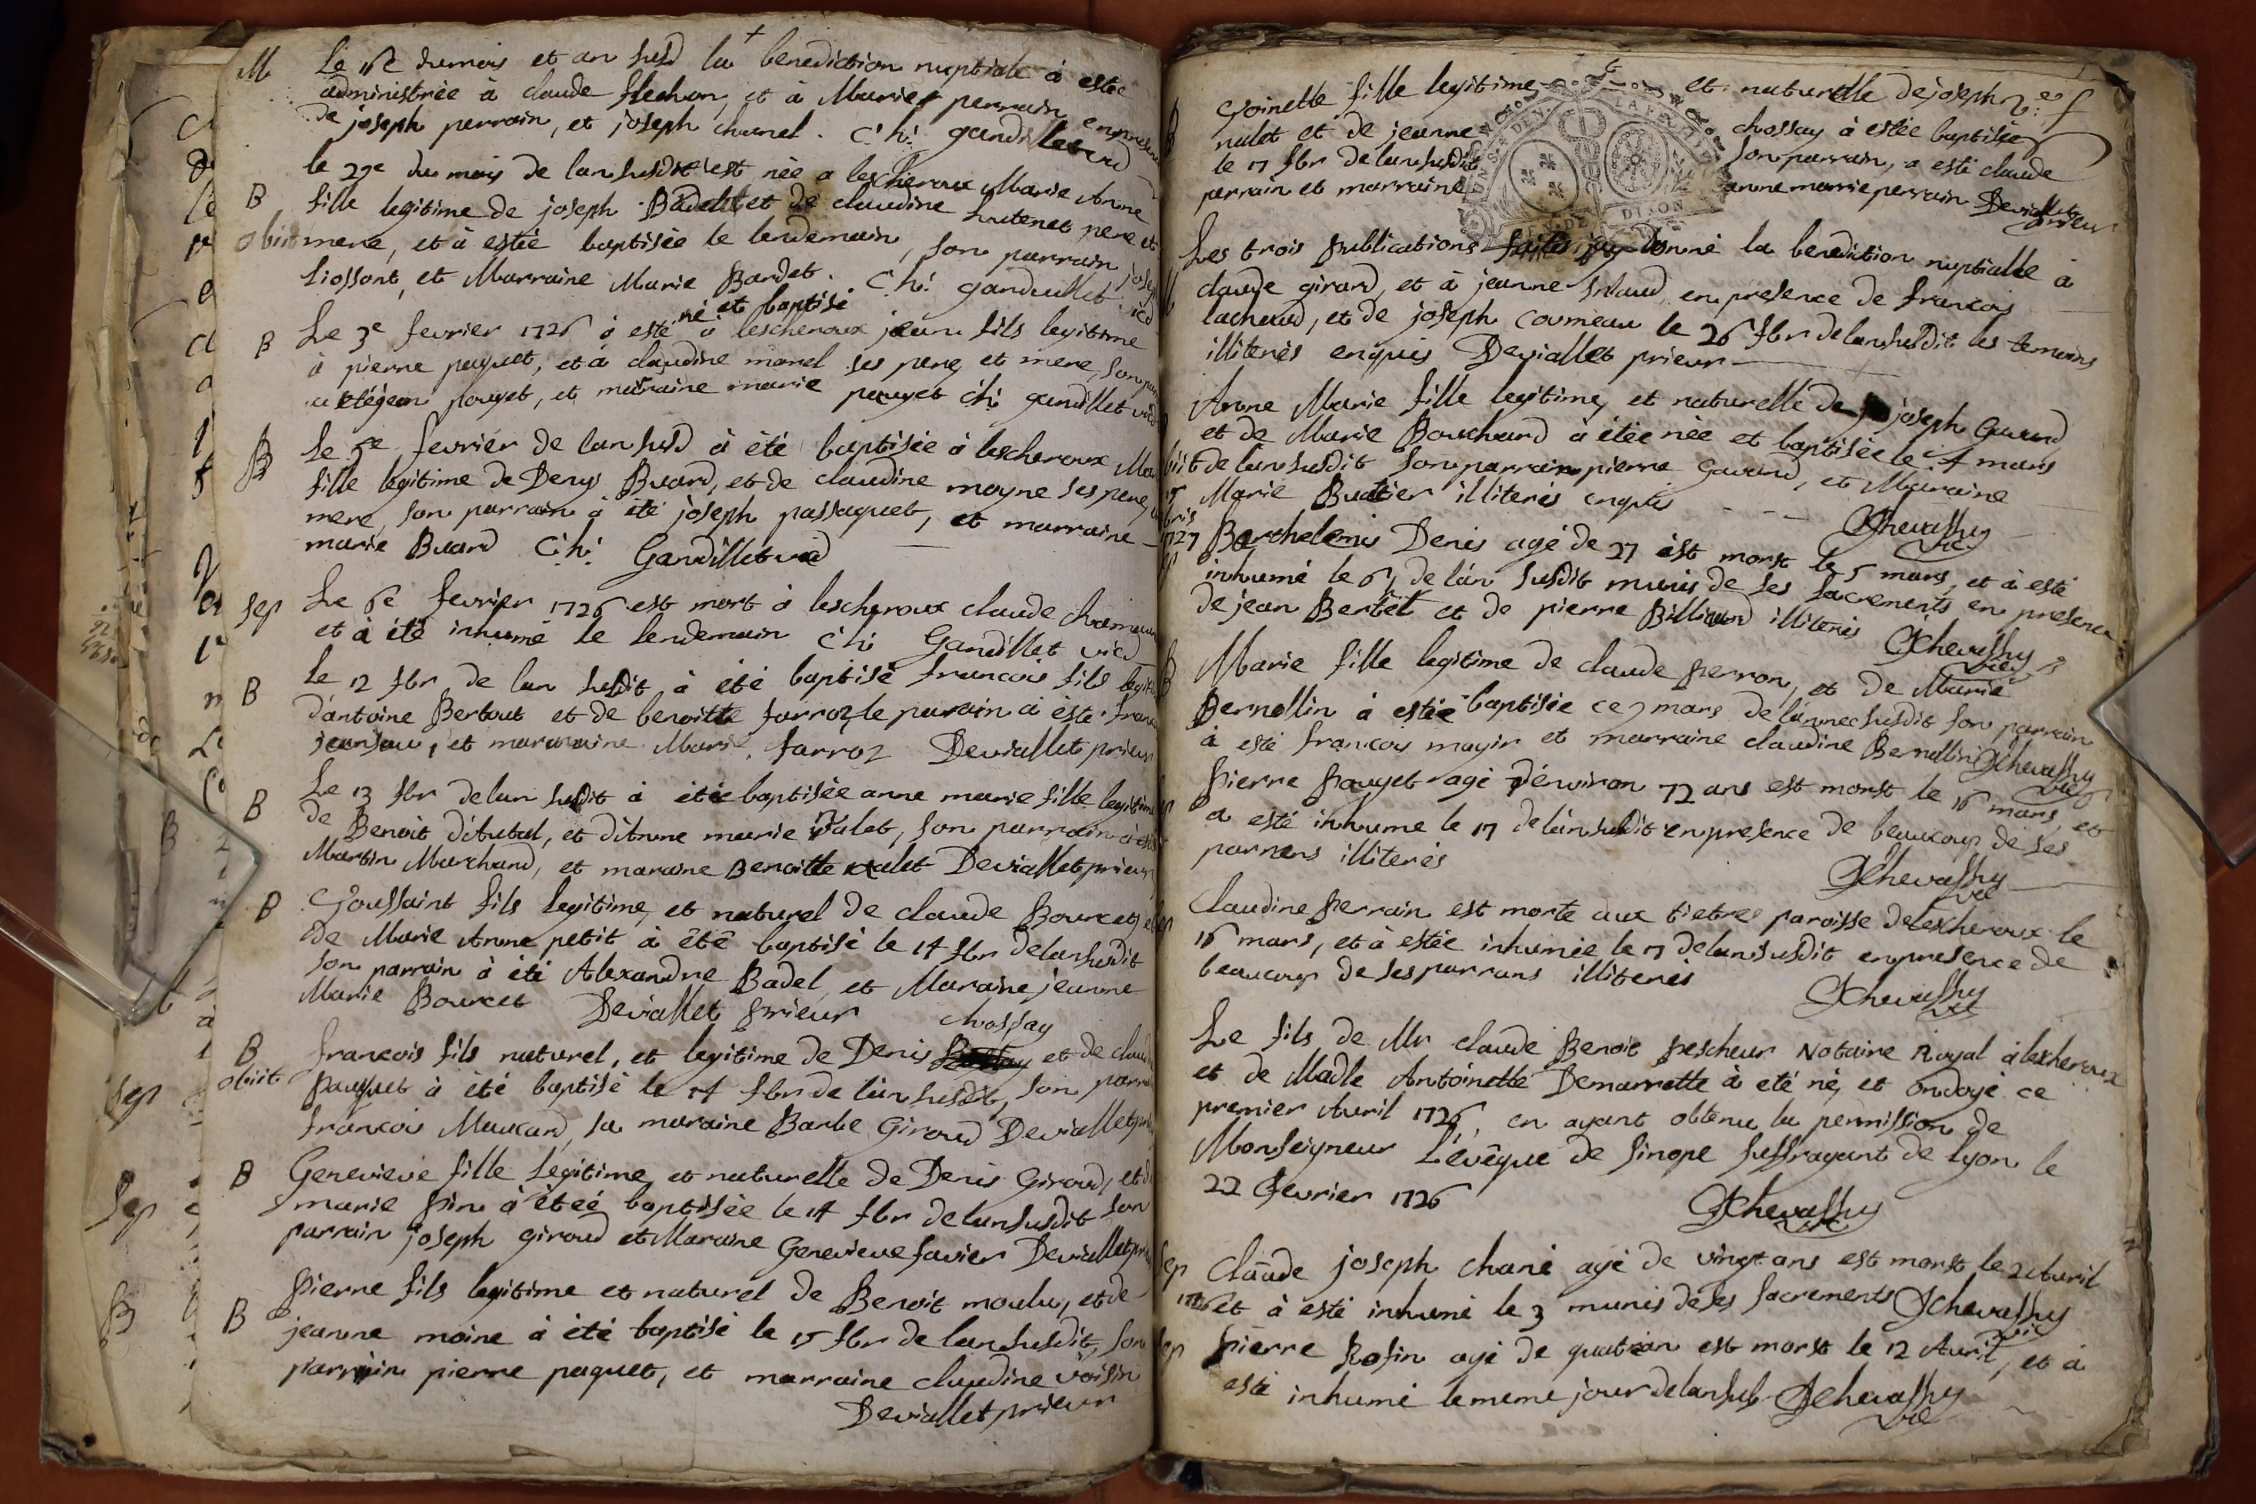 M Le 16e du mois et an susd la + benediction nuptiale à estée
administrée à claude flechon, et à Marie perrain en presence
de joseph perrain, et joseph chanel. C. h. gandillet vicd
le 29e du mois de lan susdit est née a lescheroux Marie Anne
B fille legitime de joseph Badel et de claudine hutenet pere et
obiit mere, et à estée baptisée le lendemain, son parrain joseph
Liossont, et Marraine Marie Bardet. C. h. gandillet vicd
né et baptisé
B Le 3e fevrier 1726 à esté à lescheroux jean fils legitime
à pierre paquet, et à claudine morel ses pere et mere, son par
a été jean pouget, et maraine marie pouget C. h. gandillet vicd
B Le 5e fevrier de lan susd à été baptisée à lescheroux Mar
fille legitime de Denys Buard, et de claudine moyne ses pere et
mere, son parrain à été joseph passaquet, et marraine
marie Buard C. h. Gandillet vicd
Sep Le 6e fevrier 1726 est mort à lescheroux claude
et à été inhumé le lendemain C. h. Gandillet vicd
B Le 12 fbr de lan susdit à été baptisé francois fils legiti
d'antoine Bertout et de benoitte farroz, le parain à éste franc
jeanjau, et mararaine Marie farroz Deviallet prieur
B Le 13 fbr de lan susdit à étée baptisée anne marie fille legitime
de Benoit dibutal, et ditnne marie Valet, son parrain à esté
Martin Marchand, et maraine Benoitte valet Deviallet prieur
B Toussaint fils legitime, et naturel de claude Bourcet, et
de Marie Anne petit à été baptisé le 14 fbr de lan susdit
son parrain à été Alexandre Badel, et Maraine jeanne
Marie Bourcet Deviallet prieur
chossay
B francois fils naturel, et legitime de Denis et de claudi
obiit pauquet à été baptisé le 14 fbr de lan susdit, son parrai
francois Maucard, sa maraine Barbe Giroud Deviallet pri
B Genevieve fille legitime, et naturelle de Denis Giroud, et de
marie pin à étéé baptisée le 14 fbr de lan susdit son
parrain joseph giroud et Maraine Genevieve favier Deviallet pr
B Pierre fils legitime et naturel de Benoit moulu, et de
jeanne moine à été baptisé le 15 fbr de lan susdit, son
parrain pierre paquet, et marraine claudine voisin
Deviallet prieur
Toinette fille legitime et naturelle de joseph
nalet et de jeanne chossay à estée baptisée
le 17 fbr de lan susdit son parrain, a esté claude
perrain et marraine anne marrie perrain Deviallet prieur
Les trois publications faites jay donné la benediction nuptialle à
claude girard, et à jeanne en presence de francois
lachaud, et de joseph commeau le 26 fbr de lan susdit les temoins
illiterés enquis Deviallet prieur
Anne Marie fille legitime, et naturelle de joseph Guerud
et de Marie Bouchard à étée née et baptisée le 4 mars
obiit de lan susdit son parrain pierre Guerud, et Maraine
Marie Buatier illiterés enquis Jchevassy vic
1727
Barthelemis Denis agé de 27 est morst le 5 mars, et à esté
inhumé le 6, de lán susdit munis de ses sacrements en presence
de jean Bertet et de pierre Billioud illiterés Jchevassy vic
B Marie fille legitime de claude perron, et de Marie
Bernollin à estée baptisée ce 7 mars de lánnee susdit son parrain
à esté francois moyir et marraine claudine Bernollin Jchevassy vic
Pierre Pouget agé d'environ 72 ans est morst le 16 mars, et
a esté inhumé le 17 de lán susdit en presence de beaucoup de ses
parrens illiterés Jchevassy vic
Sep Claudine perrain est morte aux tietres paroisse de lescheroux le
16 mars, et à estée inhumée le 17 de lan susdit en presence de
beaucoup de ses parrans illiterés Jchevassy vic
Le fils de Mr claude Benoit pescheur Notaire Royal à lexheroux
et de Madle Antoinette Demarrette à eté né, et ondoyé ce
premier Avril 1726, en ayant obtenu la permission de
Monseigneur L'évêque de sinope suffragant de lyon le
22 fevrier 1726 Jchevassy vic
Sep Claude joseph chané agé de vingt ans est morst le 2 Avril
1726 et à esté inhumé le 3 munis de ses sacrements Jchevassy vic
Sep pierre Rofin agé de quatrean est morst le 12 Avril, et à
esté inhumé le meme jour de lan sus Jchevassy vic